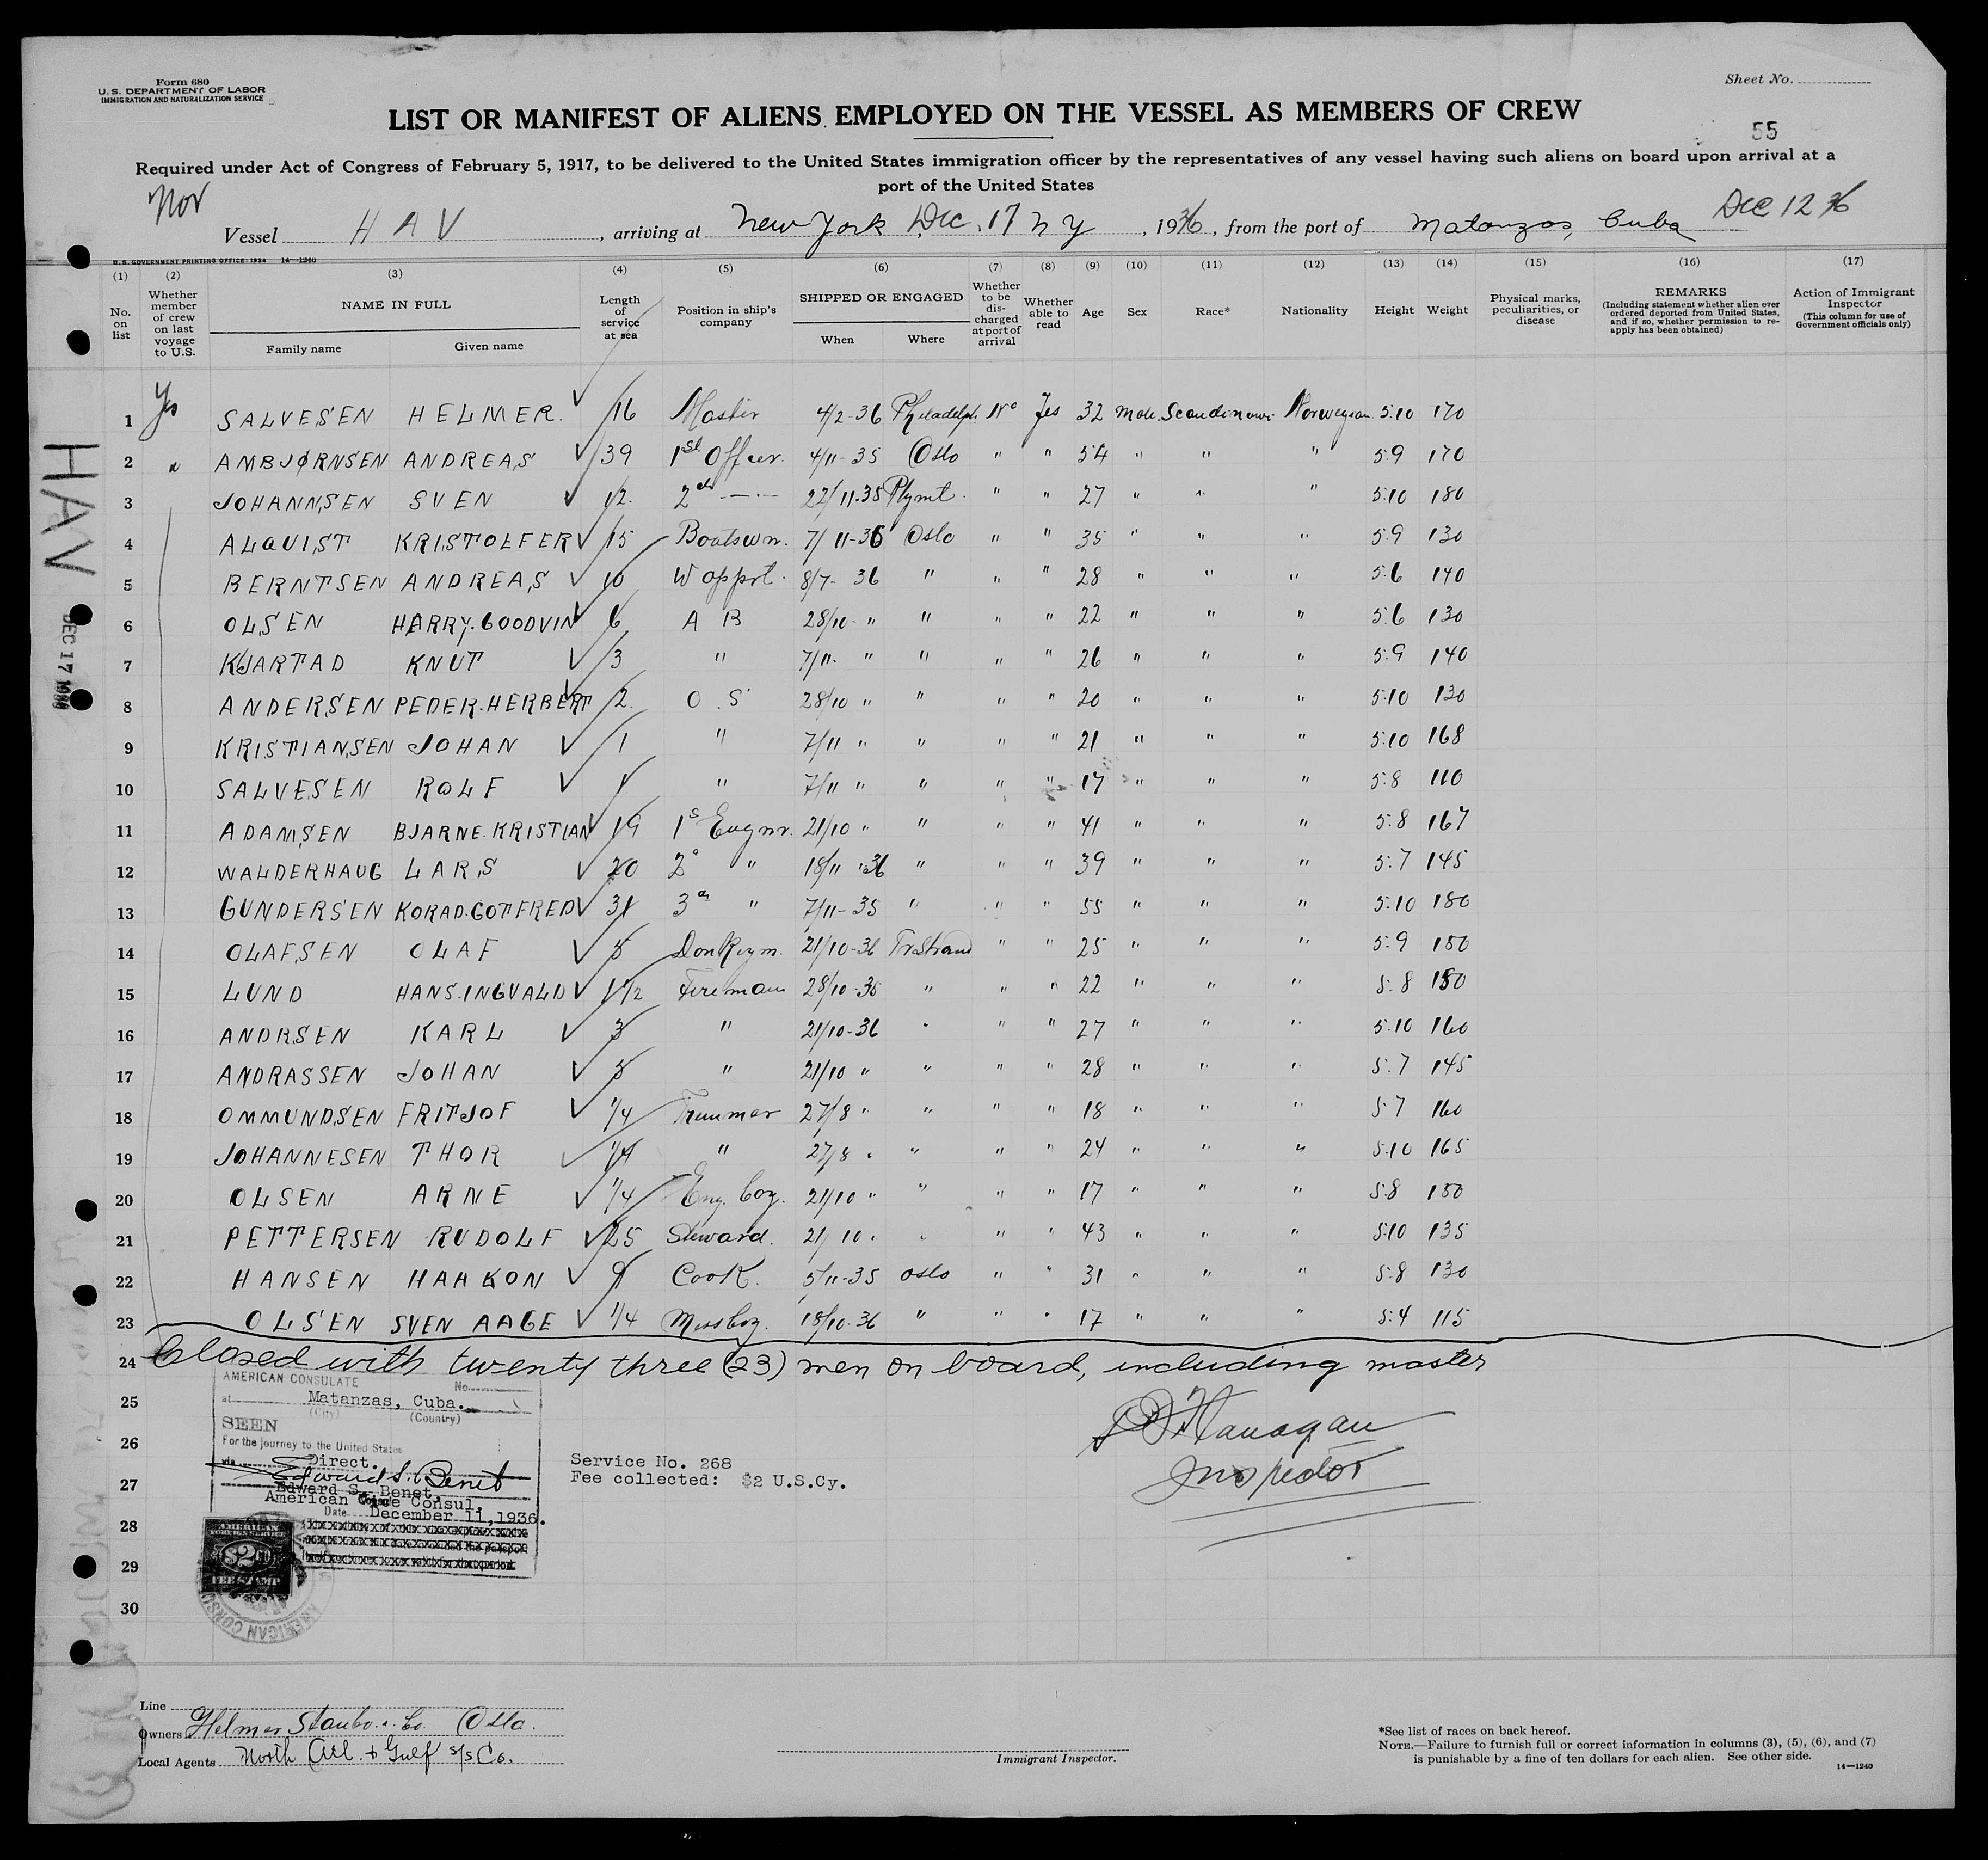 Form 680
U. S. DEPARTMENT OF LABOR
IMMIGRATION AND NATURALIZATION SERVICE
Sheet No.
LIST OR MANIFEST OF ALIENS EMPLOYED ON THE VESSEL AS MEMBERS OF CREW
55
Required under Act of Congress of February 5, 1917, to be delivered to the United States immigration officer by the representatives of any vessel having such aliens on board upon arrival at a
port of the United States
Nor
Vessel HAV, arriving at New York Dec. 17 N Y, 1936, from the port of Matanzas, Cuba Dec 12 36
U. S. GOVERNMENT PRINTING OFFICE: 1934 14—1240
(1) (2) (3) (4) (5) (6) (7) (8) (9) (10) (11) (12) (13) (14) (15) (16) (17)
No. on list
Whether member of crew on last voyage to U.S.
NAME IN FULL
Family name Given name
Length of service at sea
Position in ship's company
SHIPPED OR ENGAGED
When Where
Whether to be discharged at port of arrival
Whether able to read
Age
Sex
Race*
Nationality
Height
Weight
Physical marks, peculiarities, or disease
REMARKS
(Including statement whether alien ever ordered deported from United States, and if so, whether permission to re-apply has been obtained)
Action of Immigrant Inspector
(This column for use of Government officials only)
1 Yes SALVESEN HELMER. ✓ 16 Master 4/2-36 Philadelph. No Yes 32 Male Scandinavi Norwegian 5:10 170
2 " AMBJØRNSEN ANDREAS ✓ 39 1st Officer. 4/11-35 Oslo " " 54 " " " 5:9 170
3 JOHANNSEN SVEN ✓ 12. 2 —·— 22/11-35 Plymt. " " 27 " " " 5:10 180
4 ALQUIST KRISTOLFER ✓ 15 Boatswn. 7/11-36 Oslo " " 35 " " " 5:9 130
5 BERNTSEN ANDREAS ✓ 10 W opprt. 8/7- 36 " " " 28 " " " 5:6 140
6 OLSEN HARRY. GOODVIN ✓ 6 A B 28/10- " " " " 22 " " " 5:6 130
7 KJARTAD KNUT ✓ 3 " 7/11. " " " " 26 " " " 5:9 140
8 ANDERSEN PEDER. HERBERT ✓ 2. O. S 28/10 " " " " 20 " " " 5:10 130
9 KRISTIANSEN JOHAN ✓ 1 " 7/11 " " " " 21 " " " 5:10 168
10 SALVESEN ROLF ✓ 1 " 7/11 " " " " 17 " " " 5:8 110
11 ADAMSEN BJARNE. KRISTIAN ✓ 19 1s Engnr. 21/10 " " " " 41 " " " 5:8 167
12 WALDERHAUG LARS ✓ 20 2 " 18/11 "36 " " " 39 " " " 5:7 145
13 GUNDERSEN KORAD. GOTFRED ✓ 31 3 " 7/11-35 " " " 55 " " " 5:10 180
14 OLAFSEN OLAF ✓ 5 Donkeym. 21/10-36 " " 25 " " " 5:9 150
15 LUND HANS. INGVALD ✓ 1 1/2 Fireman 28/10-35 " " " 22 " " " 5:8 150
16 ANDRSEN KARL ✓ 3 " 21/10-36 " " " 27 " " " 5:10 160
17 ANDRASSEN JOHAN ✓ 5 " 21/10 " " " " 28 " " " 5:7 145
18 OMMUNDSEN FRITJOF ✓ 1/4 27/8 " " " " 18 " " " 5:7 160
19 JOHANNESEN THOR ✓ 1/4 " 27/8 " " " " 24 " " " 5:10 165
20 OLSEN ARNE ✓ 1/4 Eng. boy. 21/10 " " " " 17 " " " 5:8 150
21 PETTERSEN RUDOLF ✓ 25 Steward. 21/10 " " " " 43 " " " 5:10 135
22 HANSEN HAAKON ✓ 9 Cook. 5/11-35 Oslo " " 31 " " " 5:8 130
23 OLSEN SVEN AAGE ✓ 1/4 Messboy. 18/10-36 " " " 17 " " " 5:4 115
24 Closed with twenty three (23) men on board, including master
25
26
27
28
29
30
HAV
DEC 17 1936
AMERICAN CONSULATE
No.
at Matanzas, Cuba.
(City) (Country)
SEEN
For the journey to the United States
via Direct.
Edward S. Benet
Edward S. Benet,
American Vice Consul.
Date December 11, 1936.
AMERICAN
FOREIGN SERVICE
$2.00
FEE STAMP
AMERICAN CONSU
Service No. 268
Fee collected: $2 U.S.Cy.
Flanagan
Inspector
Line
Owners Helmer Staubo & Co. Oslo.
Local Agents North Atl. & Gulf S/S Co.
Immigrant Inspector.
*See list of races on back hereof.
NOTE.—Failure to furnish full or correct information in columns (3), (5), (6), and (7)
is punishable by a fine of ten dollars for each alien. See other side.
14—1240